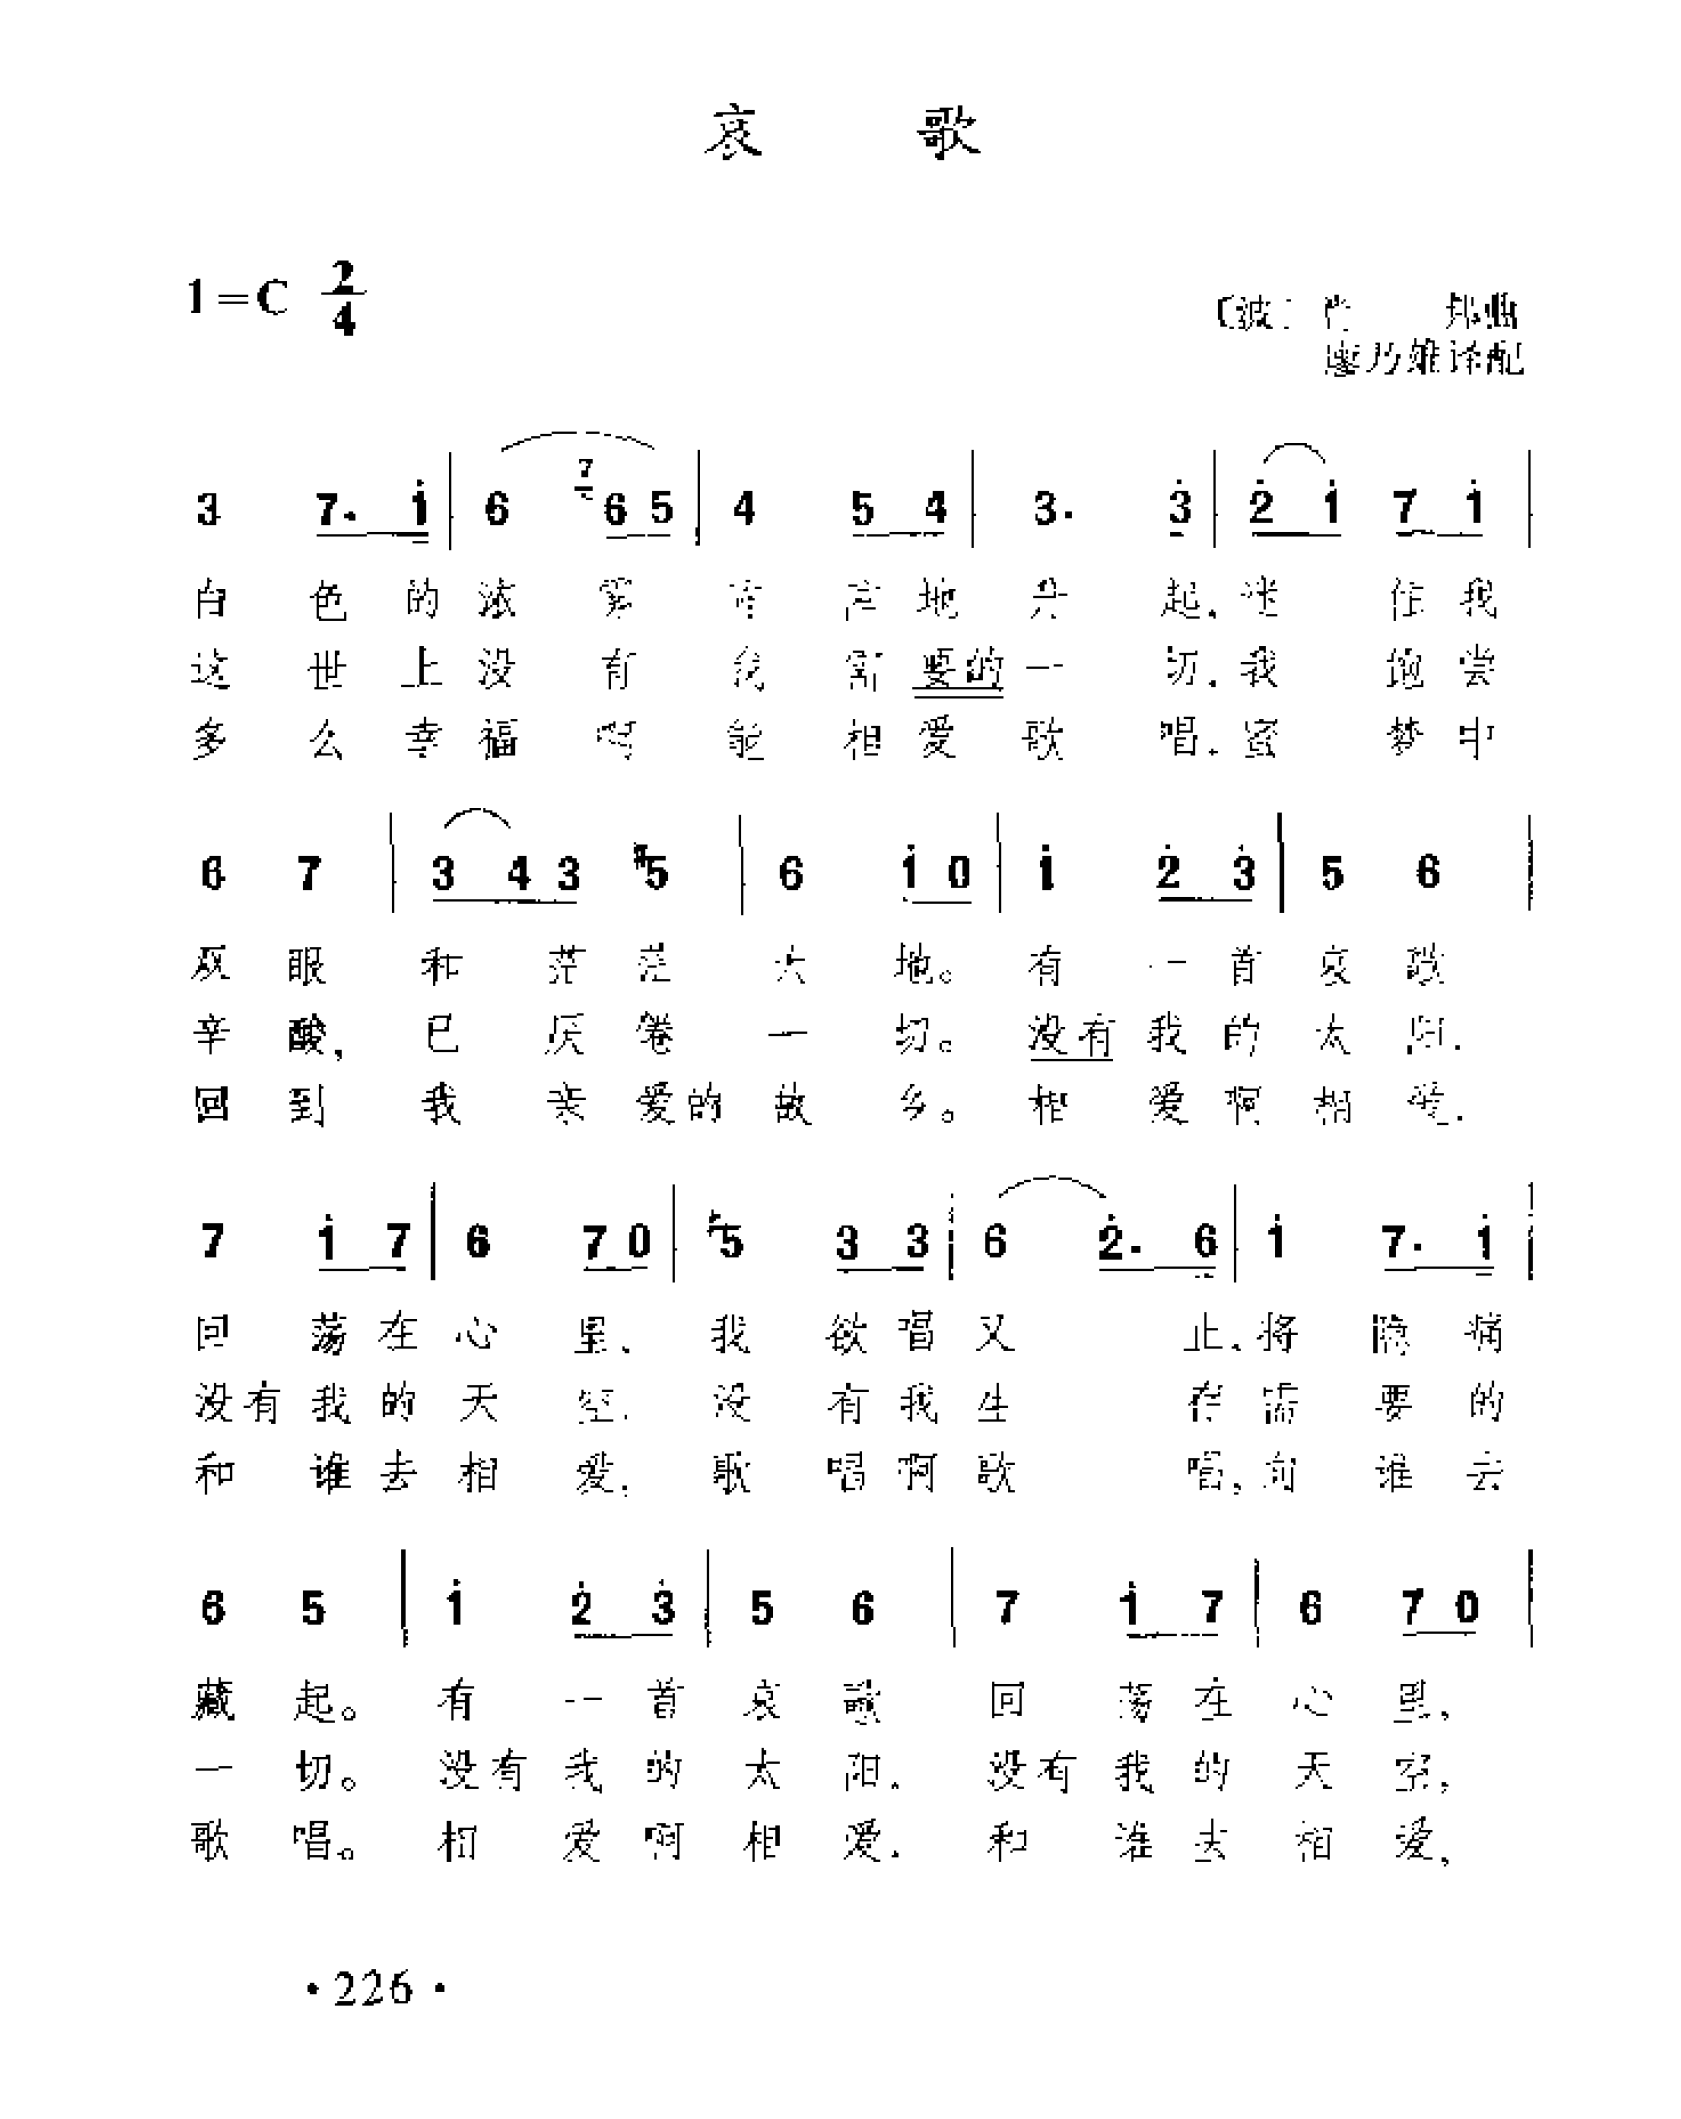 哀 歌
1=C 2/4
〔波〕肖 邦曲
廖乃雄译配
3 7. 1 | 6 7 6 5 | 4 5 4 | 3. 3 | 2 1 7 1 |
白 色 的 浓 雾 高 地 升 起, 迷 住 我
这 世 上 没 有 我 需 要的 一 切, 我 饱 尝
多 么 幸 福 啊 能 相 爱 歌 唱, 蜜 梦 中
6 7 | 3 4 3 #5 | 6 1 0 | 1 2 3 | 5 6 |
双 眼 和 茫 茫 大 地。 有 一 首 哀 歌
辛 酸, 已 厌 倦 一 切。 没有 我 的 太 阳,
回 到 我 亲 爱 的 故 乡。 相 爱 啊 相 爱,
7 1 7 | 6 7 0 | #5 3 3 | 6 2. 6 | 1 7. 1 |
回 荡 在 心 里, 我 欲 唱 又 止, 将 隐 痛
没有 我 的 天 空, 没 有 我 生 存 需 要 的
和 谁 去 相 爱, 歌 唱 啊 歌 唱, 向 谁 去
6 5 | 1 2 3 | 5 6 | 7 1 7 | 6 7 0 |
藏 起。 有 一 首 哀 歌 回 荡 在 心 里,
一 切。 没有 我 的 太 阳, 没有 我 的 天 空,
歌 唱。 相 爱 啊 相 爱, 和 谁 去 相 爱,
·226·